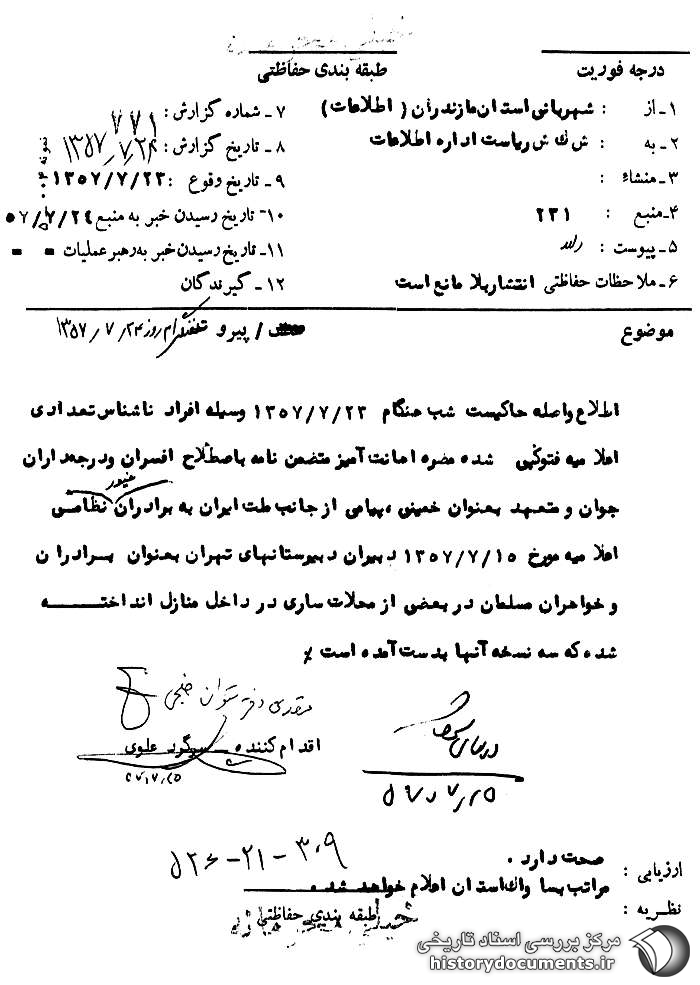 درجه فوریت
طبقه بندی حفاظتی
۱ـ از : شهربانی استان مازندران ( اطلاعات )
۲ـ به : ش ك ش ریاست اداره اطلاعات
۳ـ منشاء :
۴ـ منبع : ۲۳۱
۵ـ پیوست :
۶ـ ملاحظات حفاظتی انتشار بلا مانع است
۷ـ شماره گزارش : ۷۷۱
۸ـ تاریخ گزارش : ۱۳۵۷/۷/۲۴
۹ـ تاریخ وقوع : ۱۳۵۷/۷/۲۳
۱۰ـ تاریخ رسیدن خبر به منبع ۵۷/۷/۲۴
۱۱ـ تاریخ رسیدن خبر به رهبر عملیات - -
۱۲ـ گیرندگان
نمونه
موضوع / پیرو تلفنگرام روز ۱۳۵۷/۷/۲۴
اطلاع واصله حاکیست شب هنگام ۱۳۵۷/۷/۲۳ وسیله افراد ناشناس تعدادی
اعلامیه فتوکپی شده مضره اهانت آمیز متضمن نامه باصطلاح افسران ودرجه داران
جوان و متعهد بعنوان خمینی ، پیامی از جانب ملت ایران به برادران غیور نظامی
اعلامیه مورخ ۱۳۵۷/۷/۱۵ دبیران دبیرستانهای تهران بعنوان برادران
و خواهران مسلمان در بعضی از محلات ساری در داخل منازل انداختـــه
شده که سه نسخه آنها بدست آمده است ٪
اقدام کننده سرگرد علوی
۵۷/۷/۲۵
۵۷/۷/۲۵
۳۰۹-۲۱-۵۲۶
ارزیابی : صحت دارد .
نظریه : مراتب بساواك استان اعلام خواهد شد .
طبقه بندی حفاظتی
مرکز بررسی اسناد تاریخی
historydocuments.ir